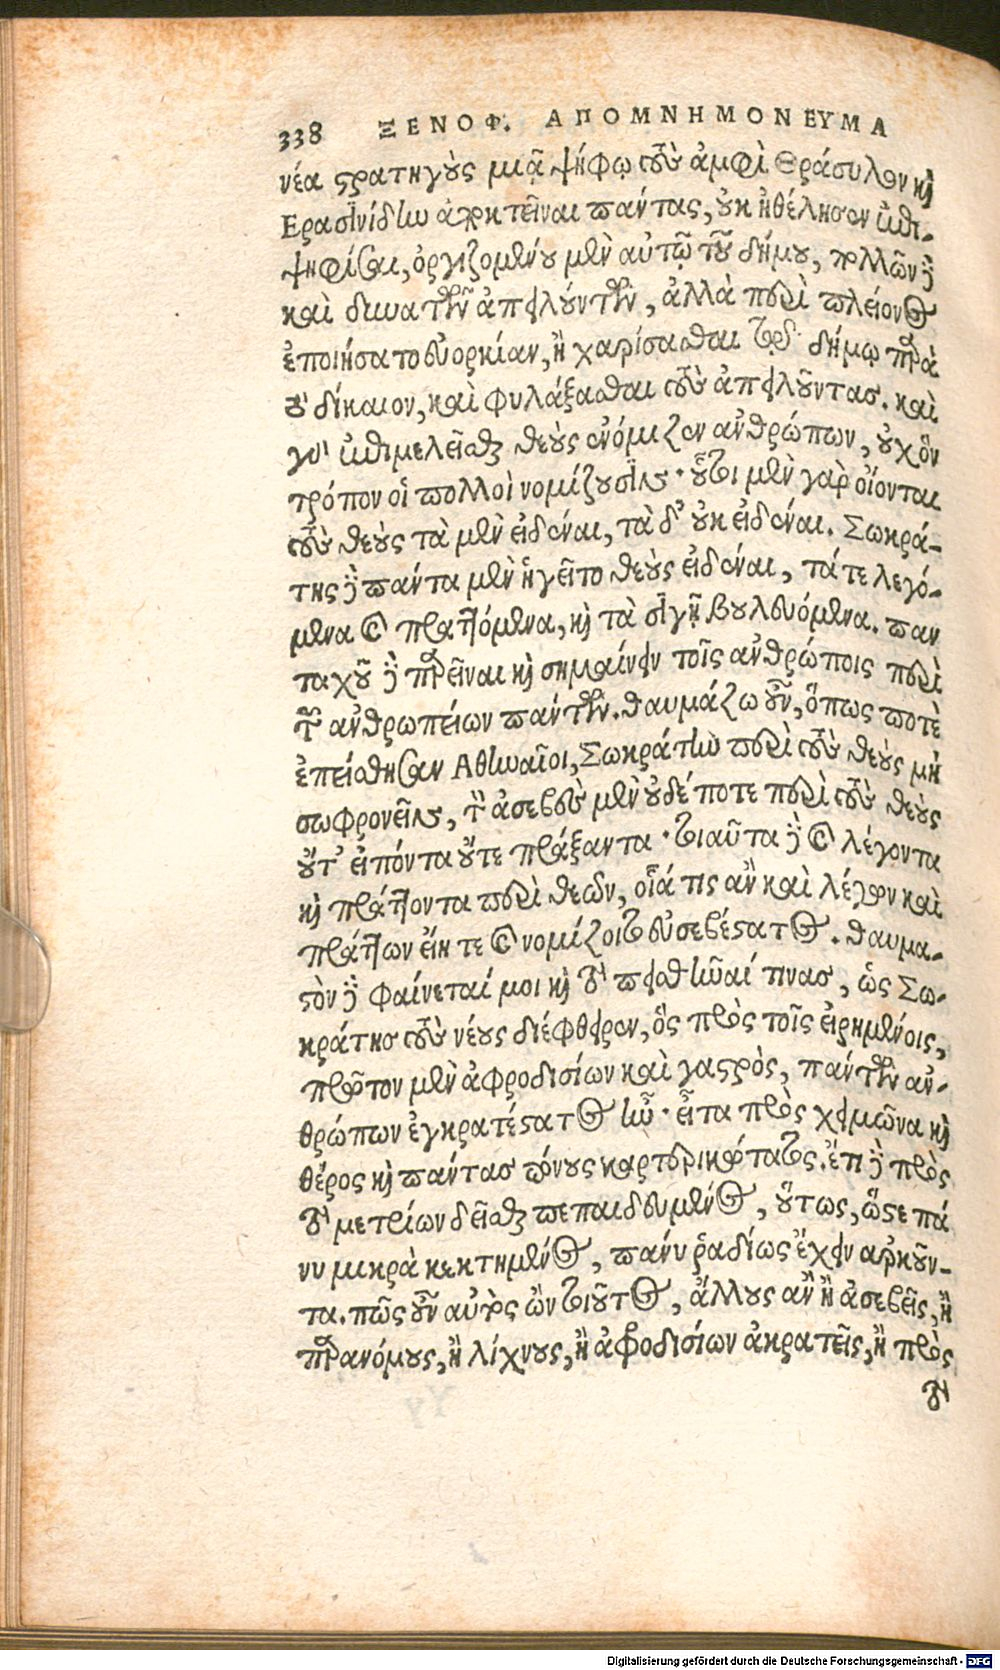 338 ΞΕΝΟΦ. ΑΠΟΜΝΗΜΟΝΕΥΜΑ
νέα στρατηγοὺς μιᾷ ψήφῳ τοὺς ἀμφὶ Θράσυλον καὶ
Ερασινίδην ἀποκτεῖναι πάντας, οὐκ ἠθέλησεν ἐπι-
ψηφίσαι, ὀργιζομένου μὲν αὐτῷ τοῦ δήμου, πολλῶν δὲ
καὶ δυνατῶν ἀπειλούντων, ἀλλὰ περὶ πλείονος
ἐποιήσατο εὐορκίαν, ἢ χαρίσασθαι τῷ δήμῳ παρὰ
τὸ δίκαιον, καὶ φυλάξασθαι τοὺς ἀπειλοῦντασ. καὶ
γὰρ ἐπιμελεῖσθαι θεοὺς ἐνόμιζεν ἀνθρώπων, οὐχ ὃν
τρόπον οἱ πολλοὶ νομίζουσιν· οὗτοι μὲν γὰρ οἴονται
τοὺς θεοὺς τὰ μὲν εἰδέναι, τὰ δ' οὐκ εἰδέναι. Σωκρά-
της δὲ πάντα μὲν ἡγεῖτο θεοὺς εἰδέναι, τά τε λεγό-
μενα καὶ πραττόμενα, καὶ τὰ σιγῇ βουλευόμενα. παν
ταχοῦ δὲ παρεῖναι καὶ σημαίνειν τοῖς ἀνθρώποις περὶ
τῶν ἀνθρωπείων πάντων. θαυμάζω οὖν, ὅπως ποτὲ
ἐπείσθησαν Αθηναῖοι, Σωκράτην περὶ τοὺς θεοὺς μὴ
σωφρονεῖν, τὸν ἀσεβὲς μὲν οὐδέ ποτε περὶ τοὺς θεοὺς
οὔτ' εἰπόντα οὔτε πράξαντα· τοιαῦτα δὲ καὶ λέγοντα
καὶ πράττοντα περὶ θεῶν, οἷά τις ἂν καὶ λέγων καὶ
πράττων εἴη τε καὶ νομίζοιτο εὐσεβέστατος. θαυμα-
στὸν δὲ φαίνεταί μοι καὶ τὸ πεισθῆναί τινασ, ὡς Σω-
κράτησ τοὺς νέους διέφθειρεν, ὃς πρὸς τοῖς εἰρημένοις,
πρῶτον μὲν ἀφροδισίων καὶ γαστρὸς, πάντων ἀν-
θρώπων ἐγκρατέστατος ἦν· εἶτα πρὸς χειμῶνα καὶ
θέρος καὶ πάντασ πόνους καρτερικώτατος. ἔτι δὲ πρὸς
τὸ μετρίων δεῖσθαι πεπαιδευμένος, οὕτως, ὥστε πά
νυ μικρὰ κεκτημένος, πάνυ ῥαδίως ἔχειν ἀρκοῦν-
τα. πῶς οὖν αὐτὸς ὢν τοιοῦτος, ἄλλους ἂν ἢ ἀσεβεῖς, ἢ
παρανόμους, ἢ λίχνους, ἢ ἀφροδισίων ἀκρατεῖς, ἢ πρὸς
τὸ
Digitalisierung gefördert durch die Deutsche Forschungsgemeinschaft - DFG